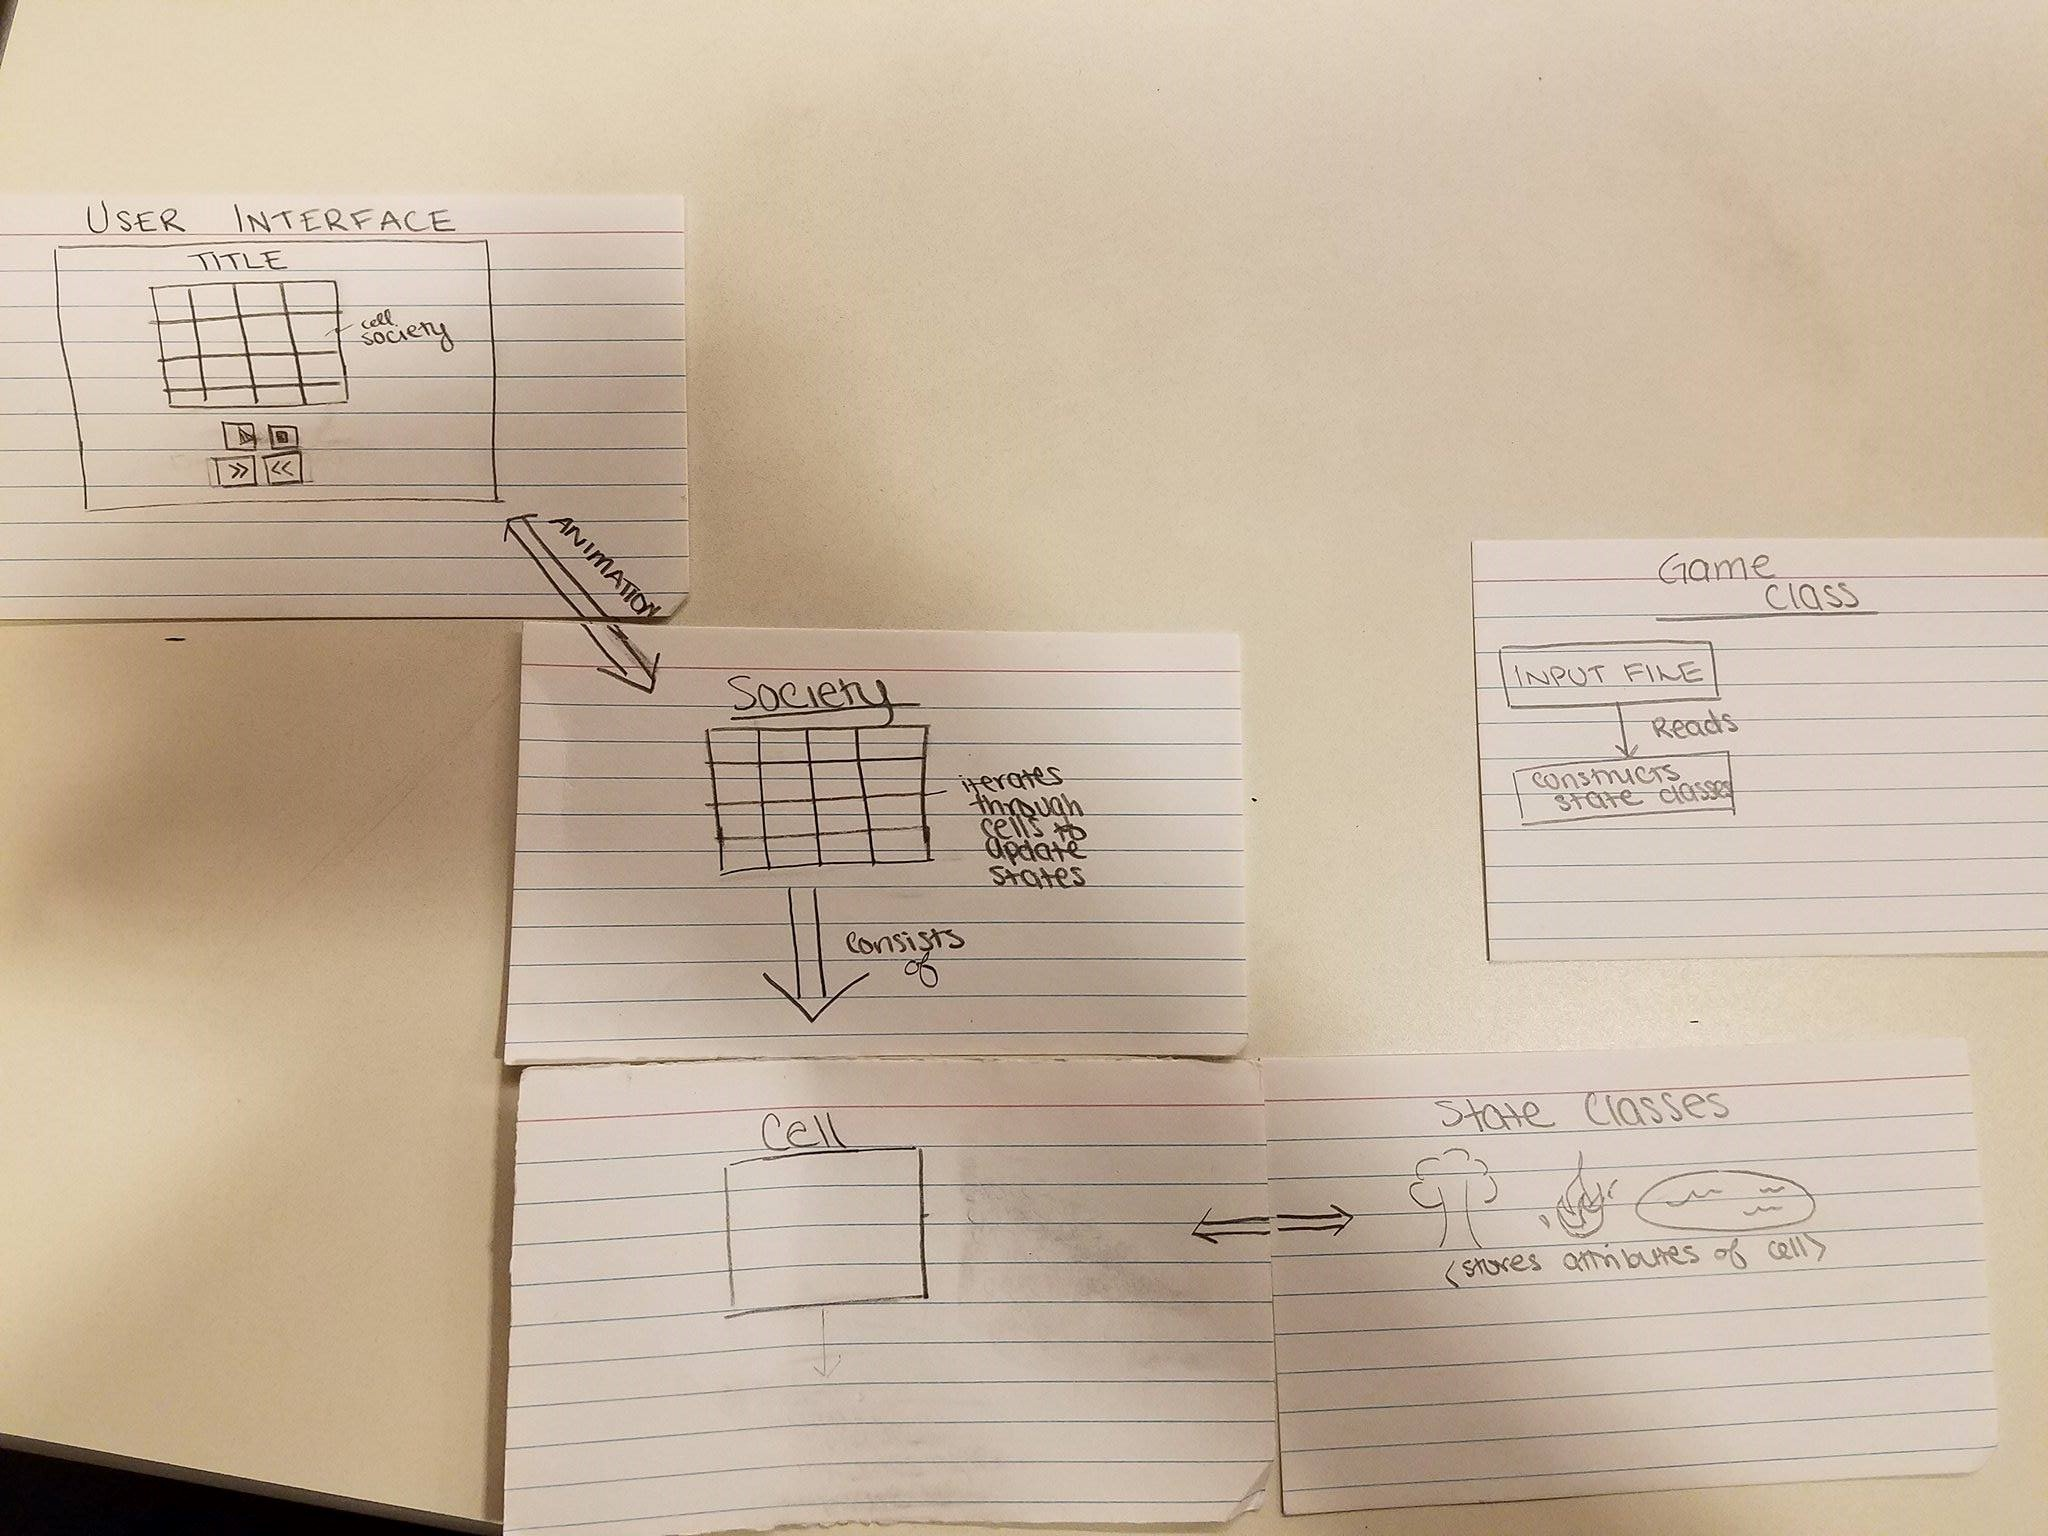 USER INTERFACE
TITLE
cell
society
ANIMATION
Society
iterates
through
cells to
update
states
consists
of
Game
Class
INPUT FILE
Reads
constructs
state classes
Cell
State Classes
(stores attributes of cell)